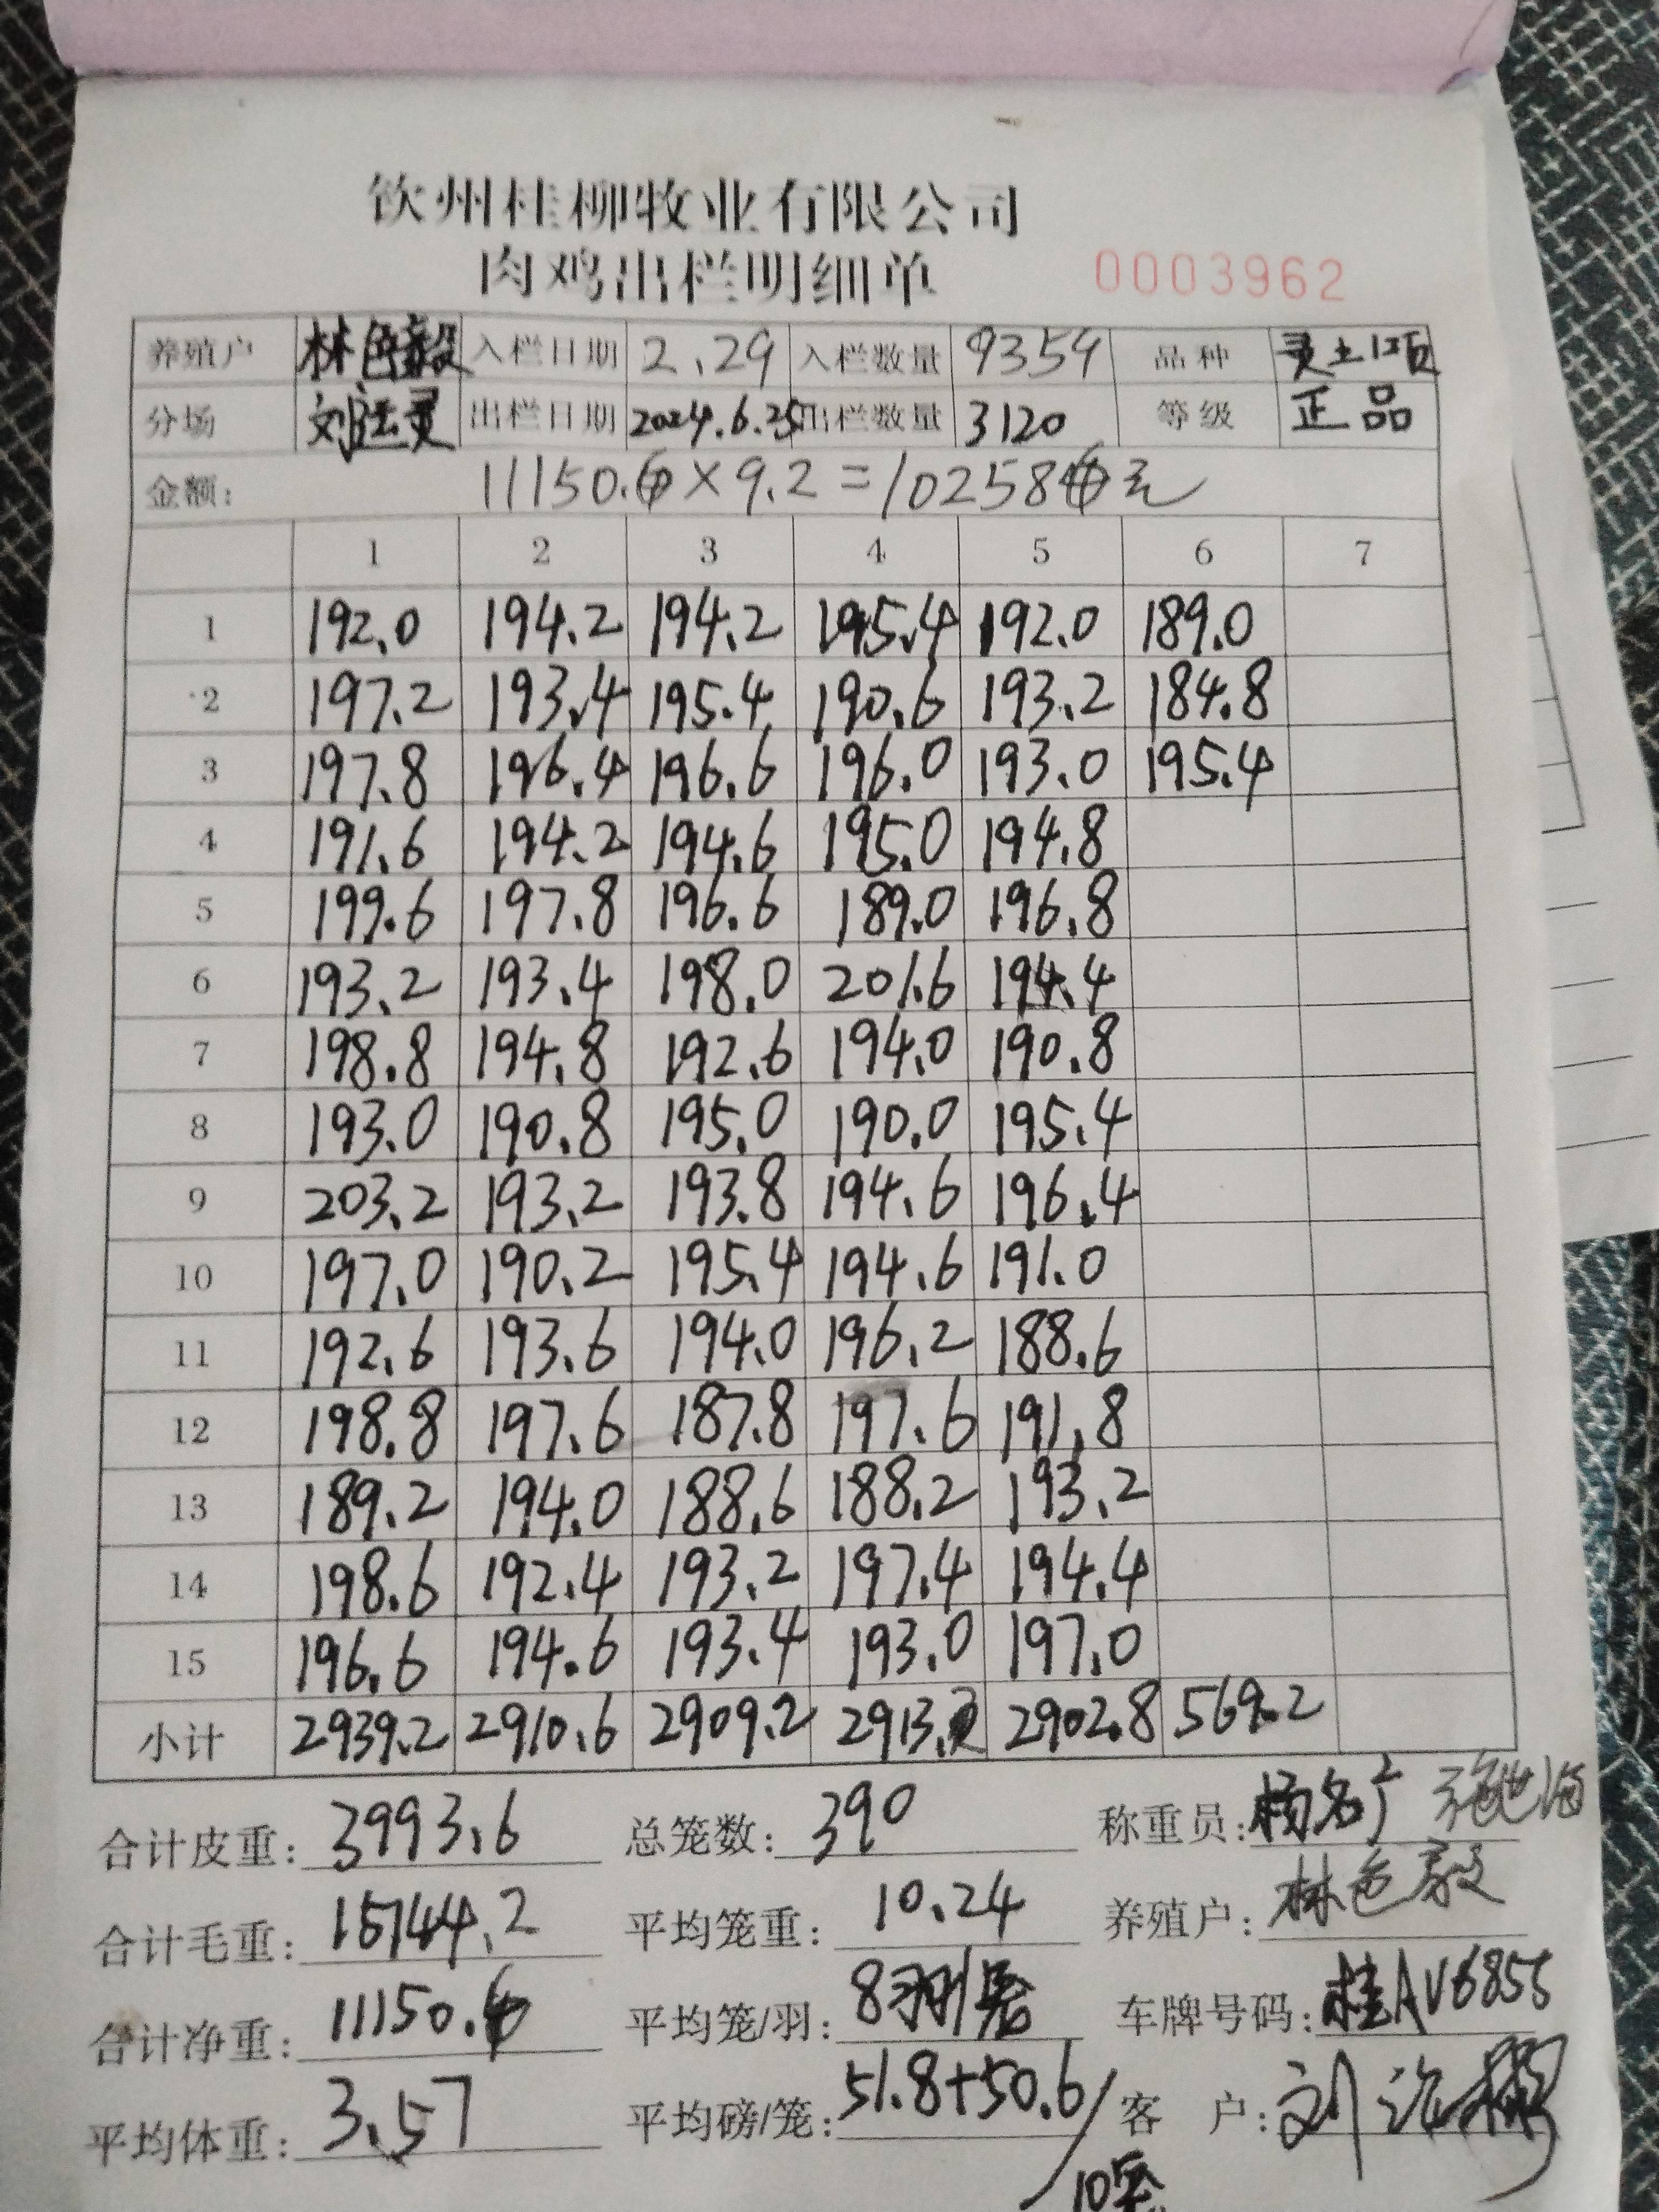 钦州桂柳牧业有限公司
肉鸡出栏明细单 0003962
养殖户 林色毅 入栏日期 2.29 入栏数量 9359 品种 灵土1项
分场 刘 灵 出栏日期 2024.6.25 出栏数量 3120 等级 正品
金额: 11150.6×9.2=102586元
1 2 3 4 5 6 7
1 192.0 194.2 194.2 195.4 192.0 189.0
2 197.2 193.4 195.4 190.6 193.2 184.8
3 197.8 196.4 196.6 196.0 193.0 195.4
4 191.6 194.2 194.6 195.0 194.8
5 199.6 197.8 196.6 189.0 196.8
6 193.2 193.4 198.0 201.6 194.4
7 198.8 194.8 192.6 194.0 190.8
8 193.0 190.8 195.0 190.0 195.4
9 203.2 193.2 193.8 194.6 196.4
10 197.0 190.2 195.4 194.6 191.0
11 192.6 193.6 194.0 196.2 188.6
12 198.8 197.6 187.8 197.6 191.8
13 189.2 194.0 188.6 188.2 193.2
14 198.6 192.4 193.2 197.4 194.4
15 196.6 194.6 193.4 193.0 197.0
小计 2939.2 2910.6 2909.2 2913.2 2902.8 569.2
合计皮重: 3993.6 总笼数: 390 称重员: 杨名广
合计毛重: 15144.2 平均笼重: 10.24 养殖户: 林色毅
合计净重: 11150.6 平均笼/羽: 8羽 车牌号码: 桂AV6855
平均体重: 3.57 平均磅/笼: 51.8+50.6/ 客 户: 刘
10笼